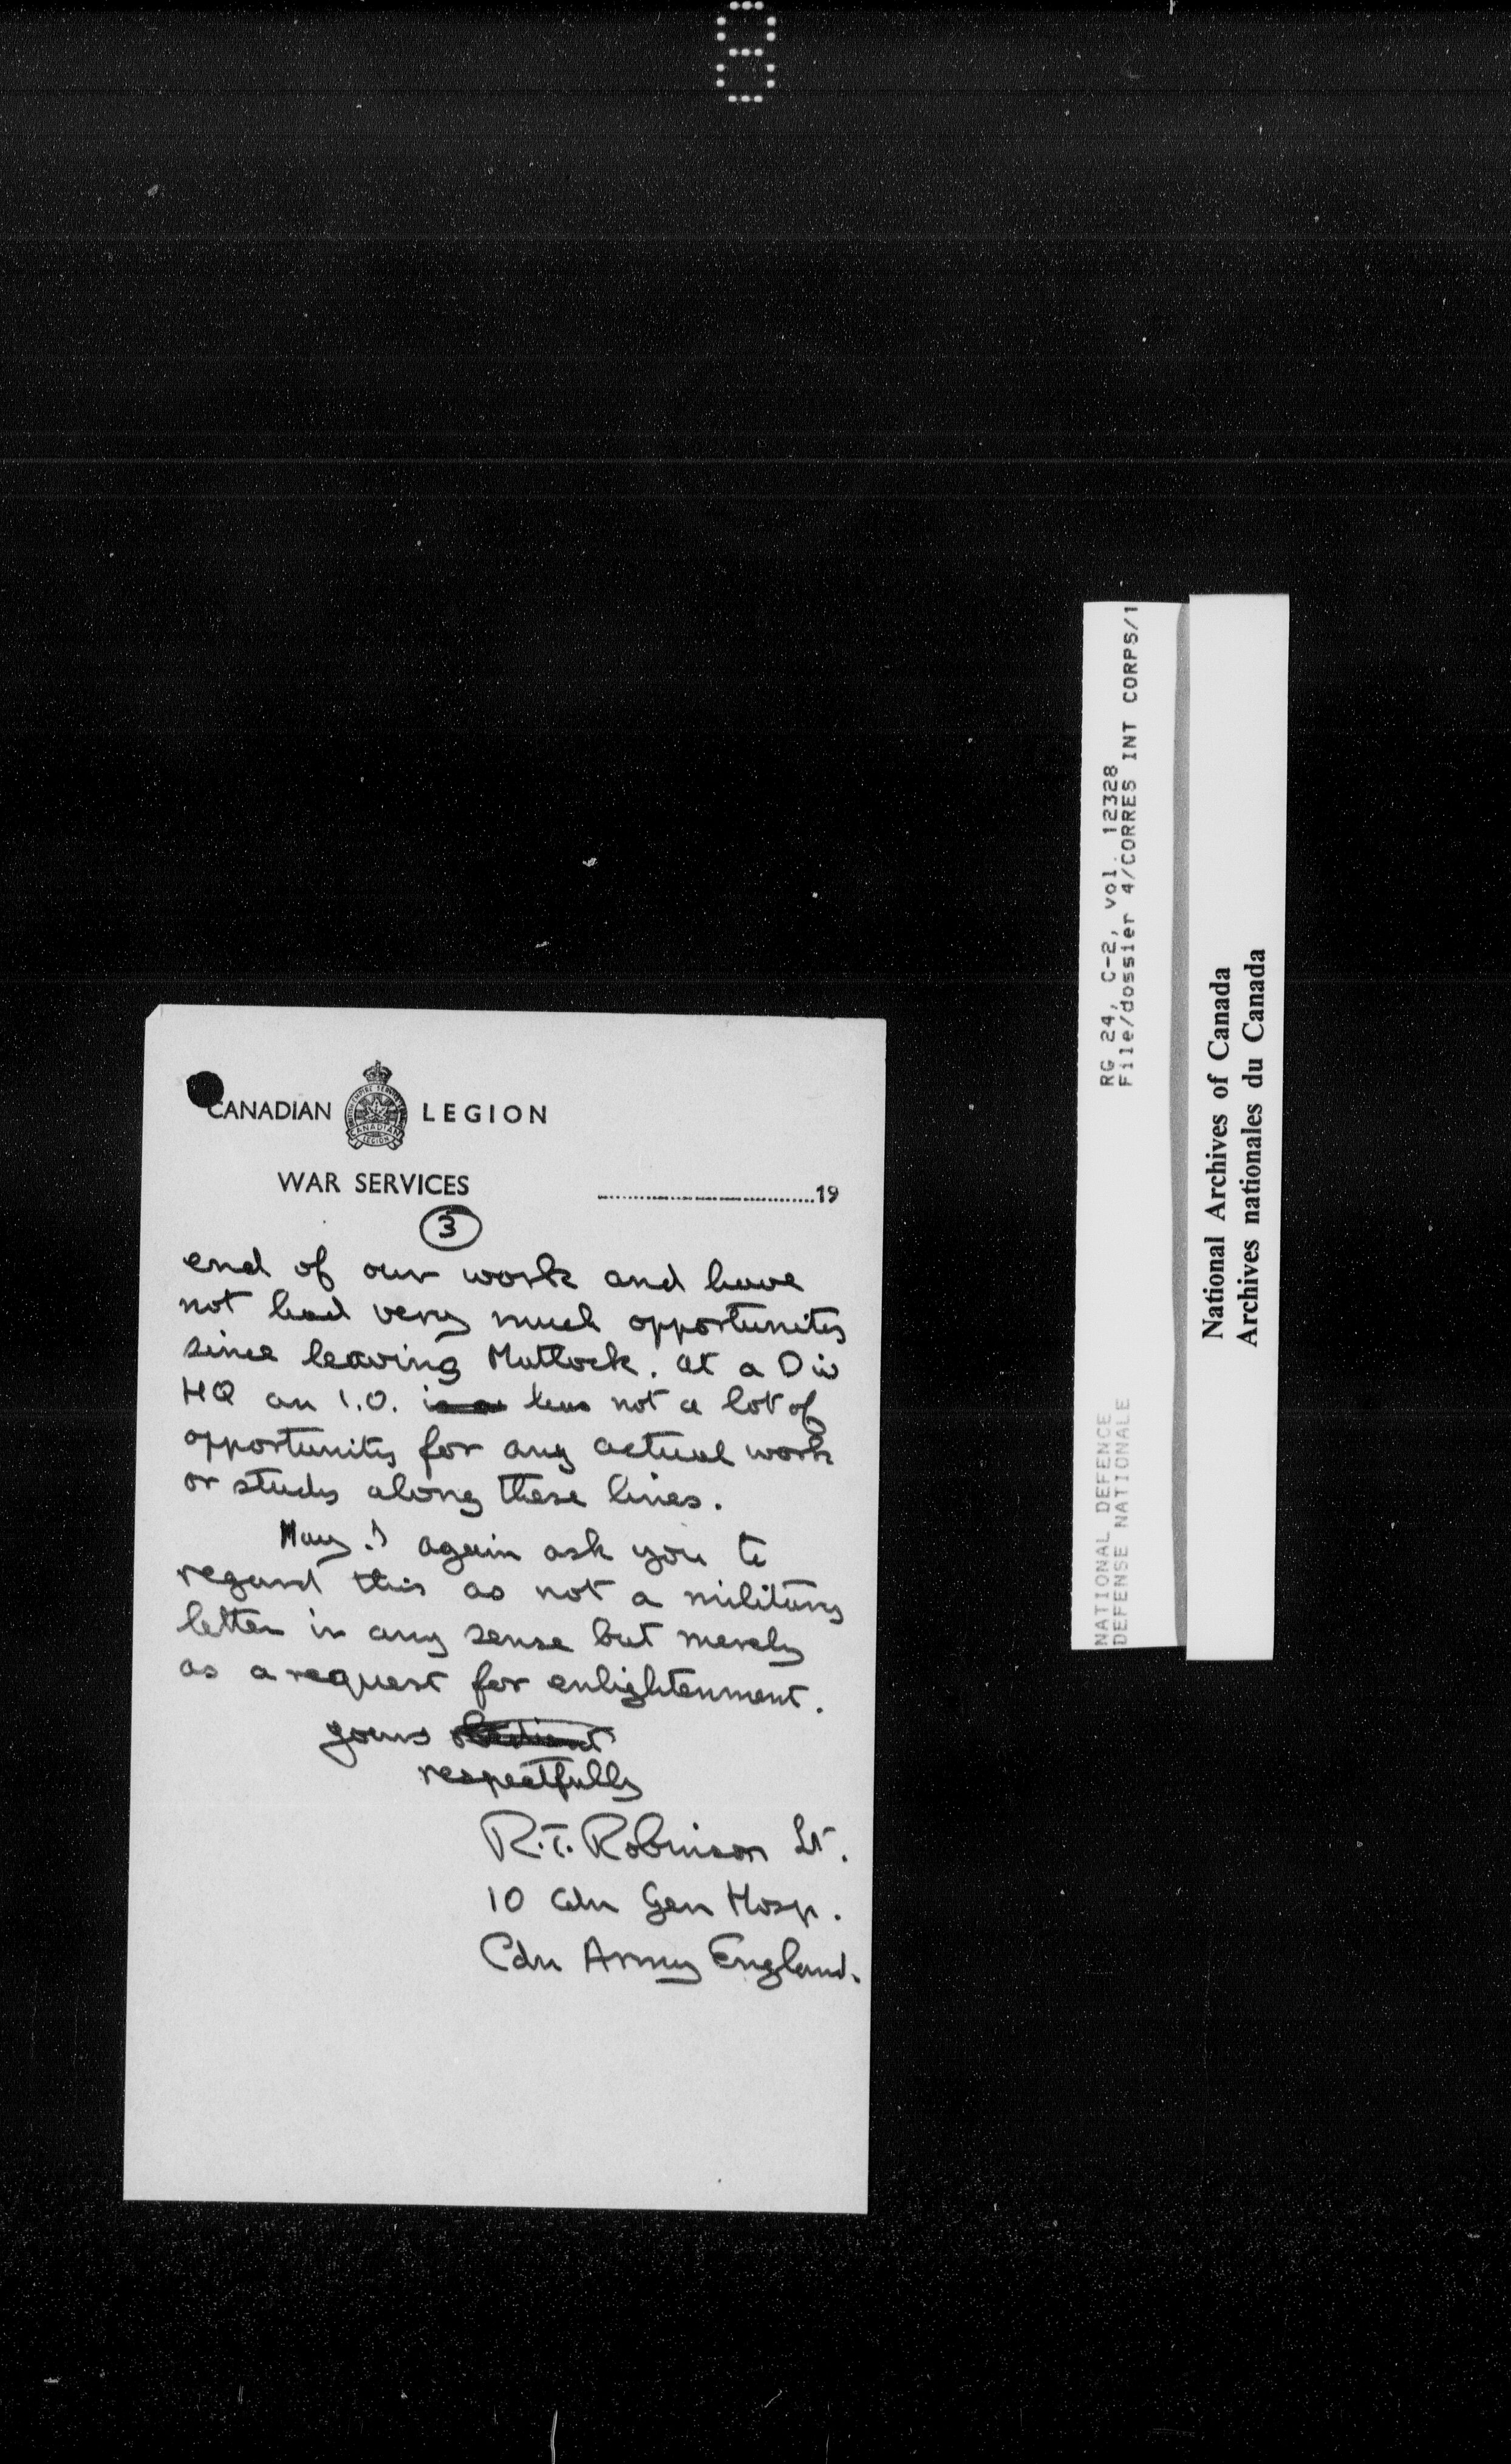 CANADIAN LEGION
WAR SERVICES
..............................19
3
end of our work and have
not had very much opportunity
since leaving Matlock. at a Div
HQ an I.O. is a has not a lot of
opportunity for any actual work
or study along these lines.
May I again ask you to
regard this as not a military
letter in any sense but merely
as a request for enlightenment.
yours obedient
respectfully
R.T. Robinson Lt.
10 Cdn Gen Hosp.
Cdn Army England.
RG 24, C-2, vol. 12328
File/dossier 4/CORRES INT CORPS/1
NATIONAL DEFENCE
DEFENSE NATIONALE
National Archives of Canada
Archives nationales du Canada